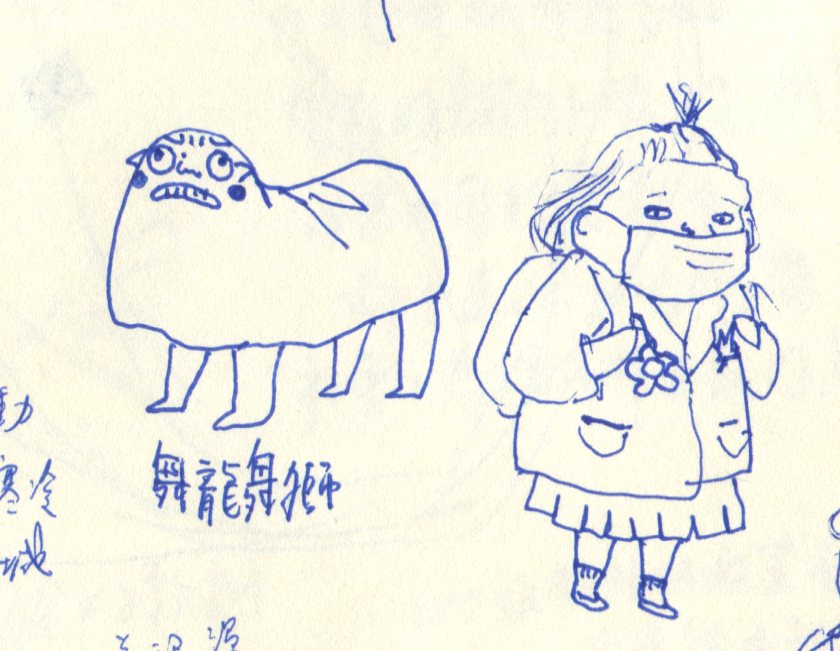 動
寒冷
城
舞龍舞獅
溫